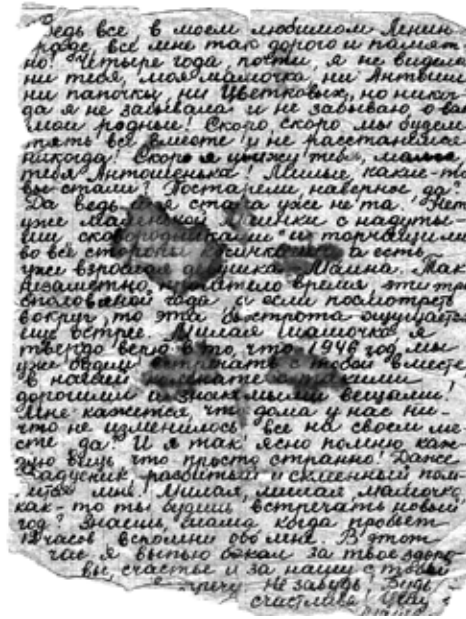 Ведь все в моем любимом Ленин
граде, все мне так дорого и памят
но! Четыре года почти, я не видела
ни тебя, моя мамочка, ни Антоши
ни папочку, ни Цветковых, но никог
да я не забывала и не забываю о вас
мои родные! Скоро скоро мы будем
опять все вместе и не расстанемся
никогда! Скоро я увижу тебя, мамуся,
тебя Антошенька! Милые какие-то
вы стали? Постарели, наверное да?
Да ведь и я стала уже не та! Нет
уже маленькой с надуты-
ми сковородниками и торчащими
во все стороны косичками а есть
уже взрослая девушка - Маина. Так
незаметно, пролетело время эти три
с половиной года, а если посмотреть
вокруг, то эта быстрота ощущается
еще острее. Милая мамочка я
твердо верю в то, что 1946 год мы
уже будем встречать с тобой вместе
в нашей комнате с такими
дорогими и знакомыми вещами!
Мне кажется, что дома у нас ни-
что не изменилось все на своем ме-
сте да? И я так ясно помню каж-
дую вещь что просто странно! Даже
разбитый и склеенный пом-
нится мне! Милая, милая, мамочка,
как-то ты будешь встречать новый
год? Знаешь, мама, когда пробьет
12 часов вспомни обо мне. В этот
час я выпью бокал за твое здоро
вье, счастье и за нашу с тобой
встречу. Не забудь! Будь
счастлива! Целую